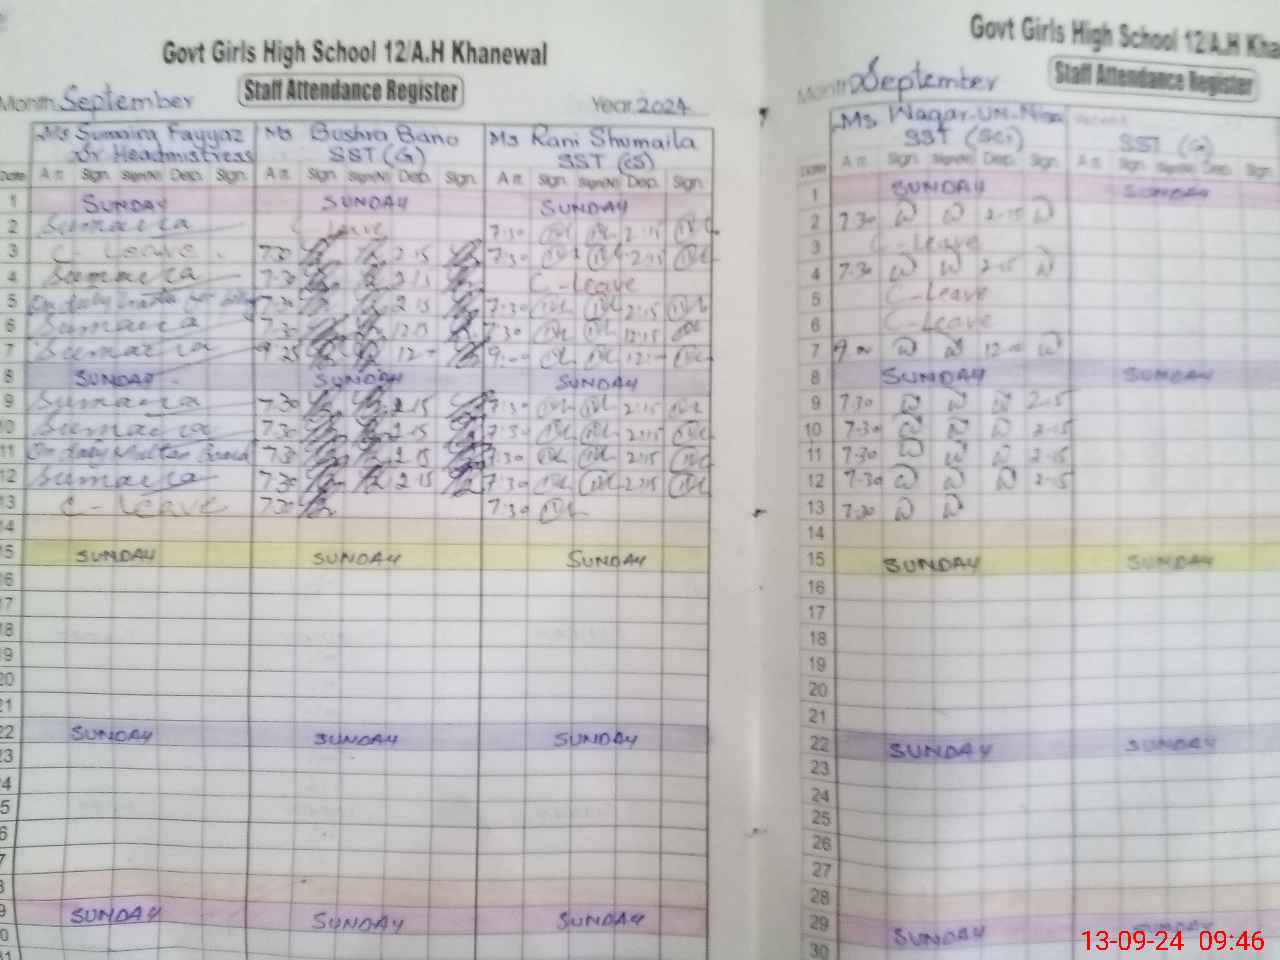 Govt Girls High School 12/A.H Khanewal
Staff Attendance Register
Month September Year 2024
Ms Sumaira Fayyaz Ms Bushra Bano Ms Rani Shumaila
Sr Headmistress SST (G) SST (CS)
Date Arr. Sign. Sign(N) Dep. Sign. Arr. Sign. Sign(N) Dep. Sign. Arr. Sign. Sign(N) Dep. Sign.
1 SUNDAY SUNDAY SUNDAY
2 Sumaira Leave 7:30 2:15
3 C-Leave 7:30 2:15 7:30 2:15
4 Sumaira 7:30 2:15 C-Leave
5 On duty 7:30 2:15 7:30 2:15
6 Sumaira 7:30 12:15 7:30 12:15
7 Sumaira 12 9:00 12:00
8 SUNDAY SUNDAY SUNDAY
9 Sumaira 7:30 2:15 7:30 2:15
10 Sumaira 7:30 2:15 7:30 2:15
11 On duty Multan Board 7:30 2:15 7:30 2:15
12 Sumaira 7:30 2:15 7:30 2:15
13 C-Leave 7:30 7:30
14
15 SUNDAY SUNDAY SUNDAY
16
17
18
19
20
21
22 SUNDAY SUNDAY SUNDAY
23
24
25
26
27
28
29 SUNDAY SUNDAY SUNDAY
30
31
Govt Girls High School 12/A.H Kha
Staff Attendance Register
Month September
Ms Waqar-un-Nisa
SST (Sci) SST (G)
Date Arr. Sign. Sign(N) Dep. Sign. Arr. Sign. Sign(N) Dep. Sign.
1 SUNDAY SUNDAY
2 7:30 2:15
3 C-Leave
4 7:30 2:15
5 C-Leave
6 C-Leave
7 9:00 12:00
8 SUNDAY SUNDAY
9 7:30 2:15
10 7:30 2:15
11 7:30 2:15
12 7:30 2:15
13 7:30
14
15 SUNDAY SUNDAY
16
17
18
19
20
21
22 SUNDAY SUNDAY
23
24
25
26
27
28
29 SUNDAY SUNDAY
30
13-09-24 09:46